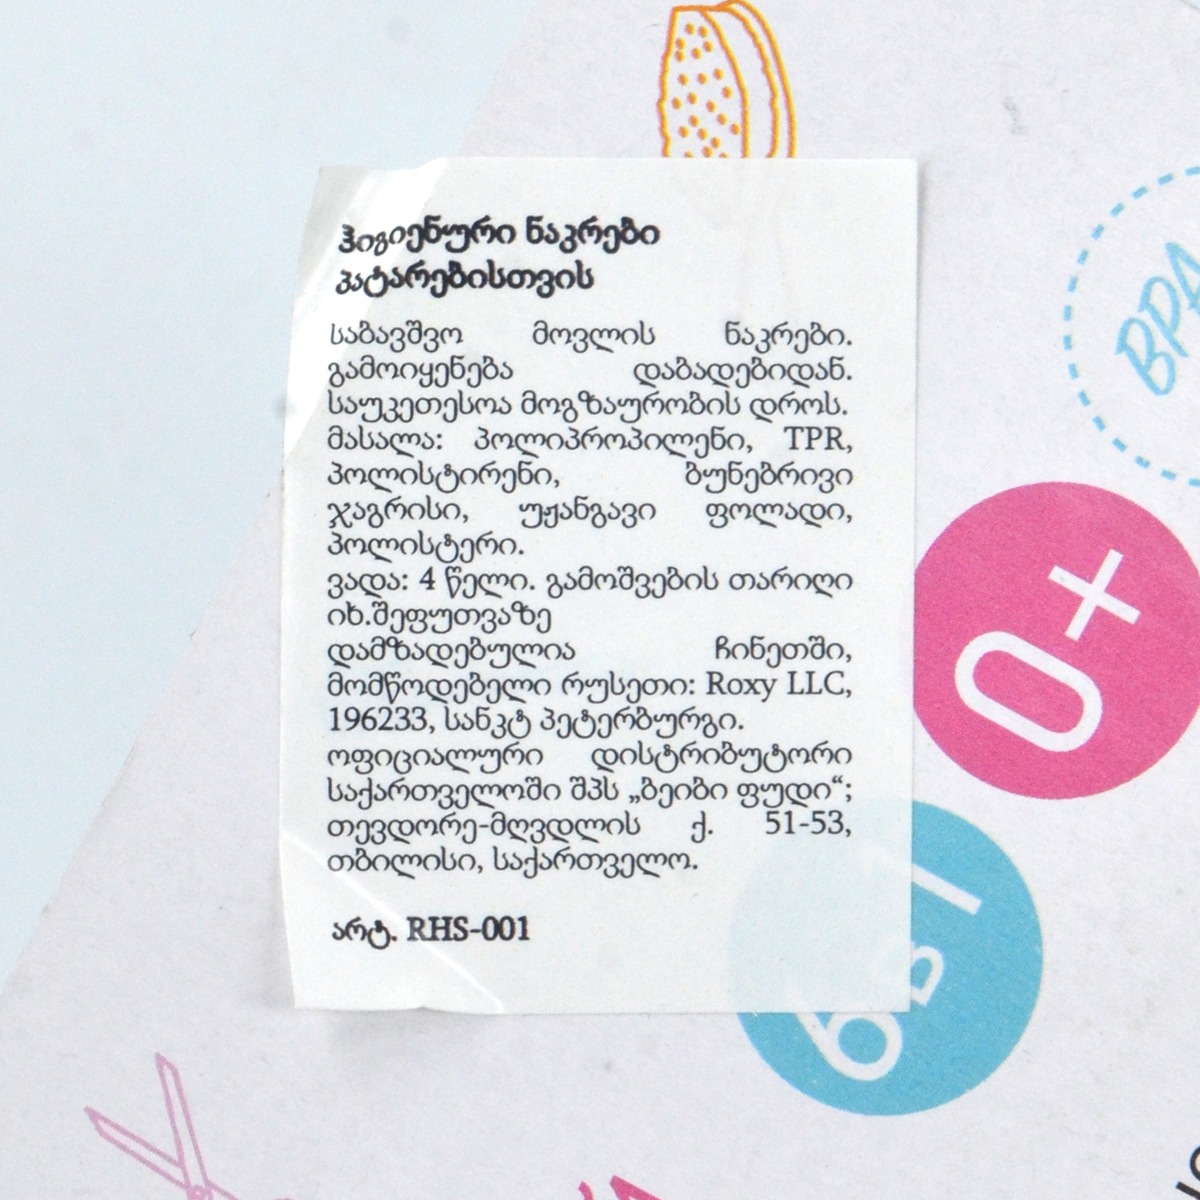 ჰიგიენური ნაკრები
პატარებისთვის
საბავშვო მოვლის ნაკრები.
გამოიყენება დაბადებიდან.
საუკეთესოა მოგზაურობის დროს.
მასალა: პოლიპროპილენი, TPR,
პოლისტირენი, ბუნებრივი
ჯაგრისი, უჟანგავი ფოლადი,
პოლისტერი.
ვადა: 4 წელი. გამოშვების თარიღი
იხ.შეფუთვაზე
დამზადებულია ჩინეთში,
მომწოდებელი რუსეთი: Roxy LLC,
196233, სანკტ პეტერბურგი.
ოფიციალური დისტრიბუტორი
საქართველოში შპს „ბეიბი ფუდი“;
თევდორე-მღვდლის ქ. 51-53,
თბილისი, საქართველო.
არტ. RHS-001
BPA
0+
6 в 1